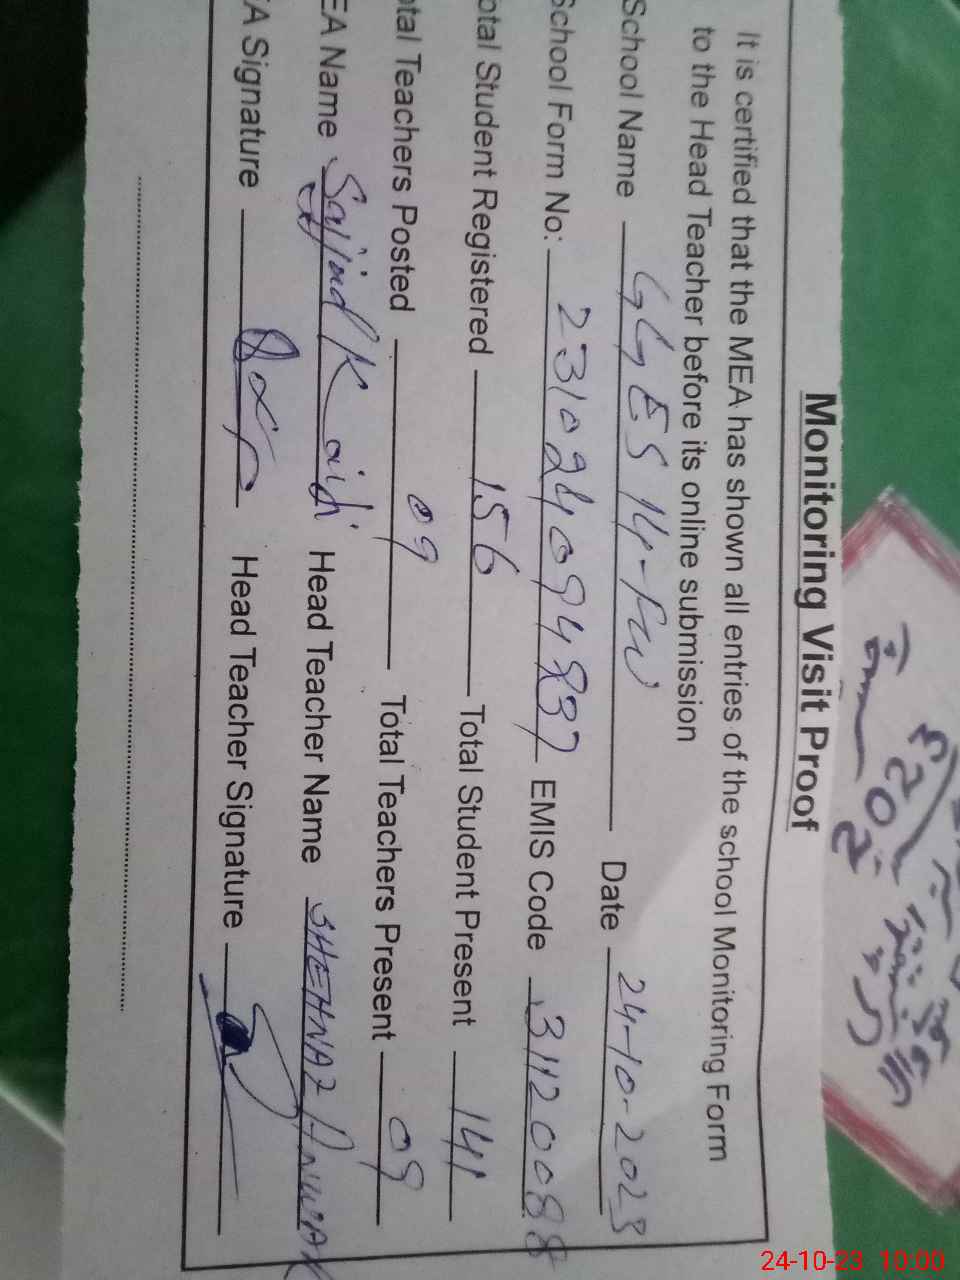 Monitoring Visit Proof
It is certified that the MEA has shown all entries of the school Monitoring Form
to the Head Teacher before its online submission
School Name GGES 14-FW Date 24-10-2023
School Form No: 231024094837 EMIS Code 31120088
otal Student Registered 156 Total Student Present 141
otal Teachers Posted 09 Total Teachers Present 09
EA Name Sajjad K Head Teacher Name SHEHNAZ ANWAR
A Signature Head Teacher Signature
3
202
24-10-23 10:00